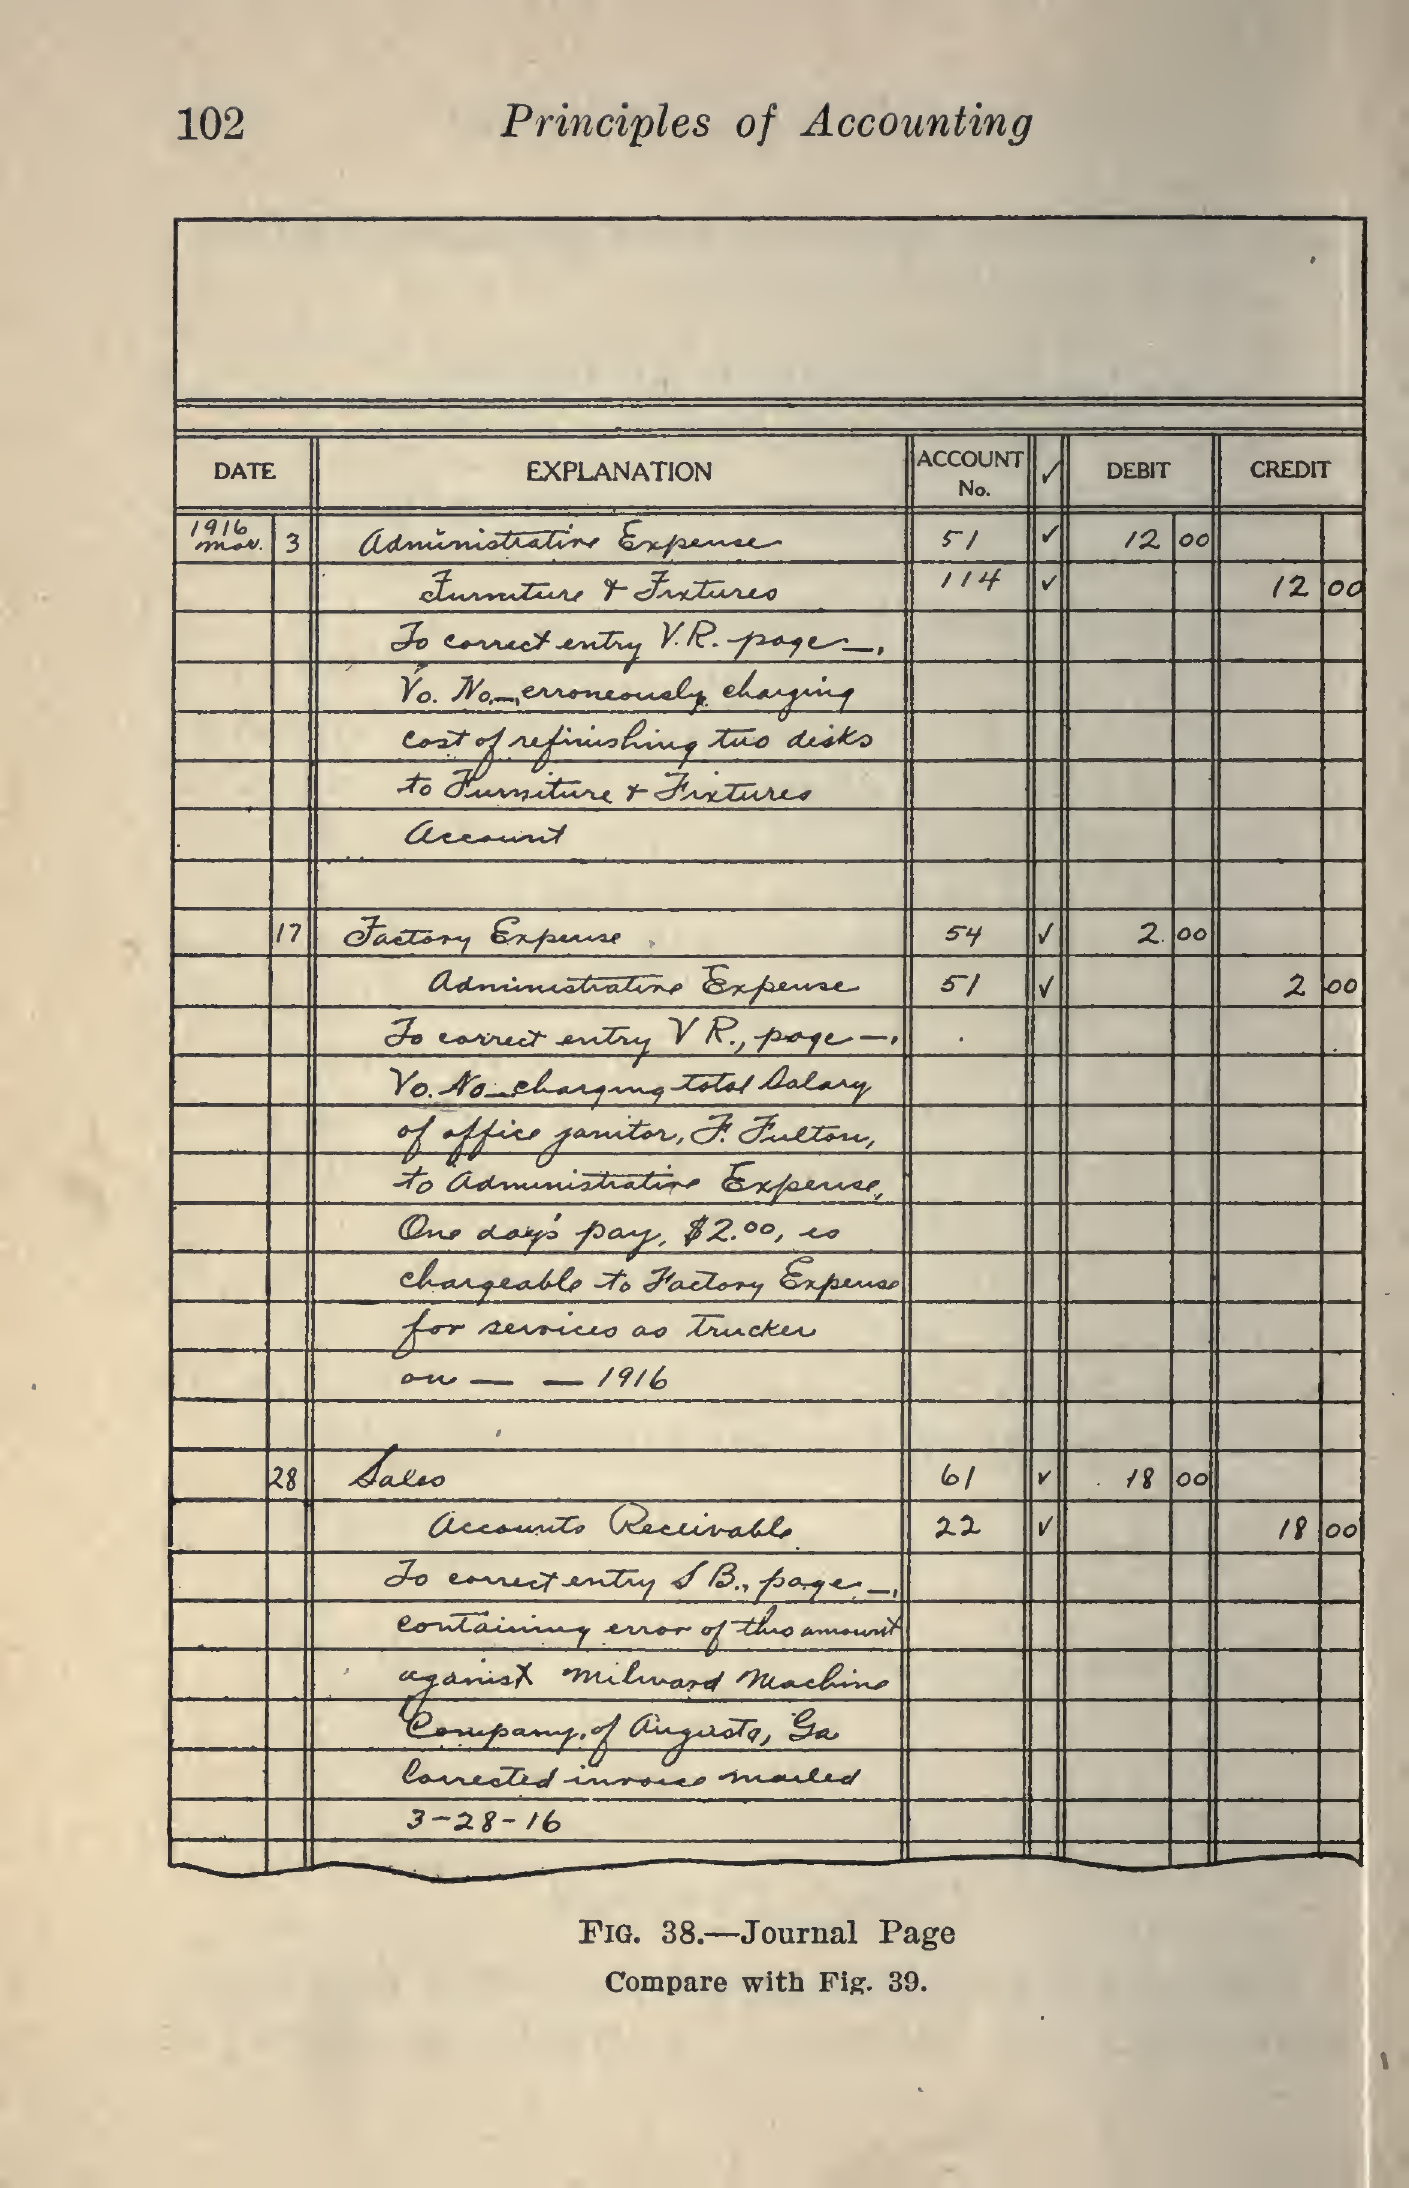 102 Principles of Accounting
DATE EXPLANATION ACCOUNT No. ✓ DEBIT CREDIT
1916
Mar. 3 Administrative Expense 51 ✓ 12 00
Furniture & Fixtures 114 ✓ 12 00
To correct entry V.R. page —,
Vo. No. —, erroneously charging
cost of refinishing two desks
to Furniture & Fixtures
Account
17 Factory Expense 54 ✓ 2 00
Administrative Expense 51 ✓ 2 00
To correct entry V R., page —.
Vo. No — charging total Salary
of office janitor, F. Fulton,
to Administrative Expense,
One day's pay, $2.00, is
chargeable to Factory Expense
for services as trucker
on — — 1916
28 Sales 61 ✓ 18 00
Accounts Receivable 22 ✓ 18 00
To correct entry S B., page —,
containing error of this amount
against Milward Machine
Company, of Augusta, Ga
Corrected invoice mailed
3-28-16
FIG. 38.—Journal Page
Compare with Fig. 39.